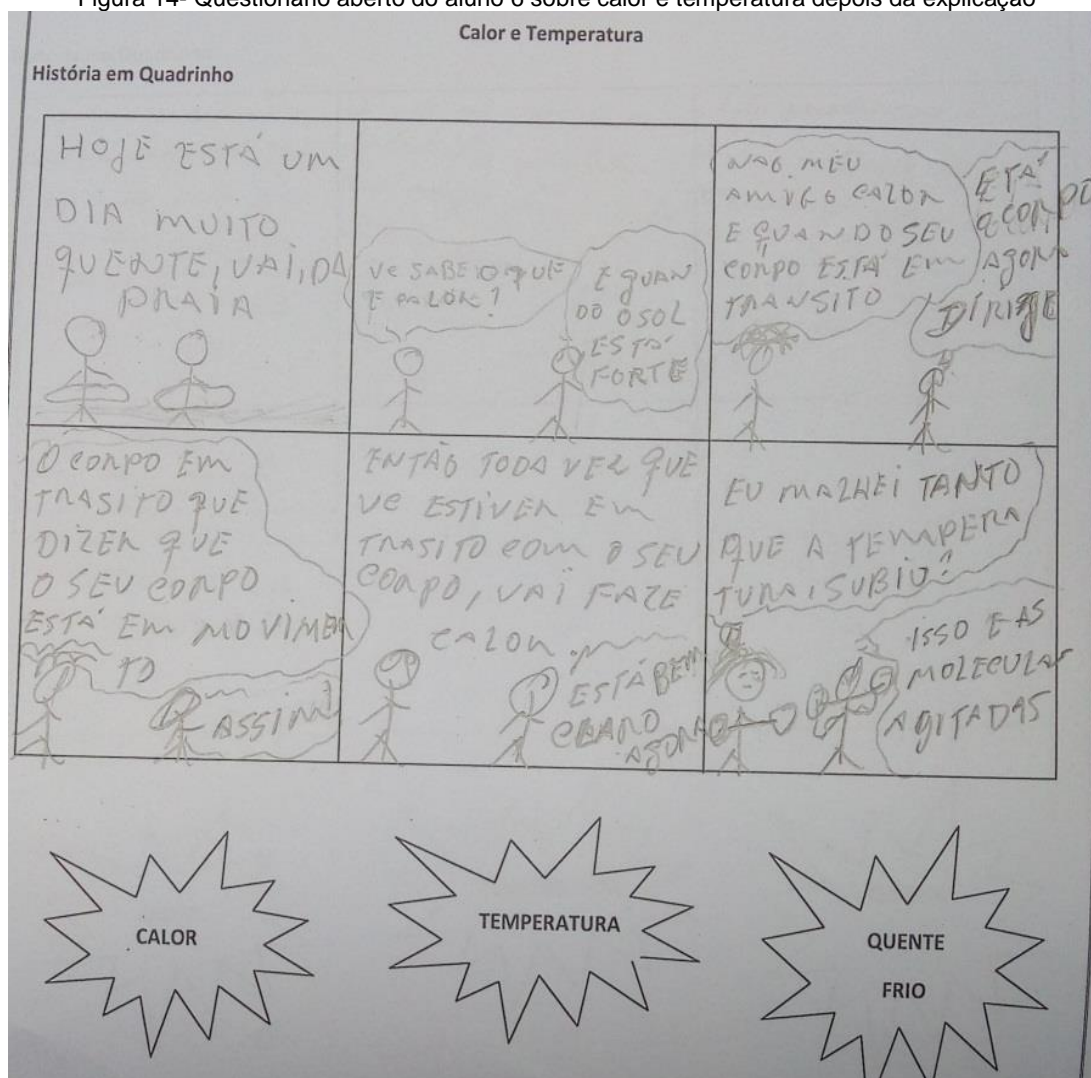 Figura 14- Questionário aberto do aluno 6 sobre calor e temperatura depois da explicação
Calor e Temperatura
História em Quadrinho
HOJE ESTÁ UM
DIA MUITO
QUENTE, VAI, DA
PRAIA
VC SABE O QUE
É CALOR?
E QUAN
DO O SOL
ESTÁ
FORTE
NÃO MEU
AMIGO CALOR
E QUANDO SEU
CORPO ESTÁ EM
TRANSITO
ETÁ
AGORA
DIRIGE
O CORPO EM
TRASITO QUE
DIZER QUE
O SEU CORPO
ESTÁ EM MOVIMEN
TO
ASSIM
ENTÃO TODA VEZ QUE
VC ESTIVER EM
TRASITO COM O SEU
CORPO, VAI FAZE
CALOR
ESTÁ BEM
CLARO
AGORA
EU MALHEI TANTO
QUE A TEMPERA
TURA, SUBIU?
ISSO E AS
MOLECULAS
AGITADAS
CALOR
TEMPERATURA
QUENTE
FRIO